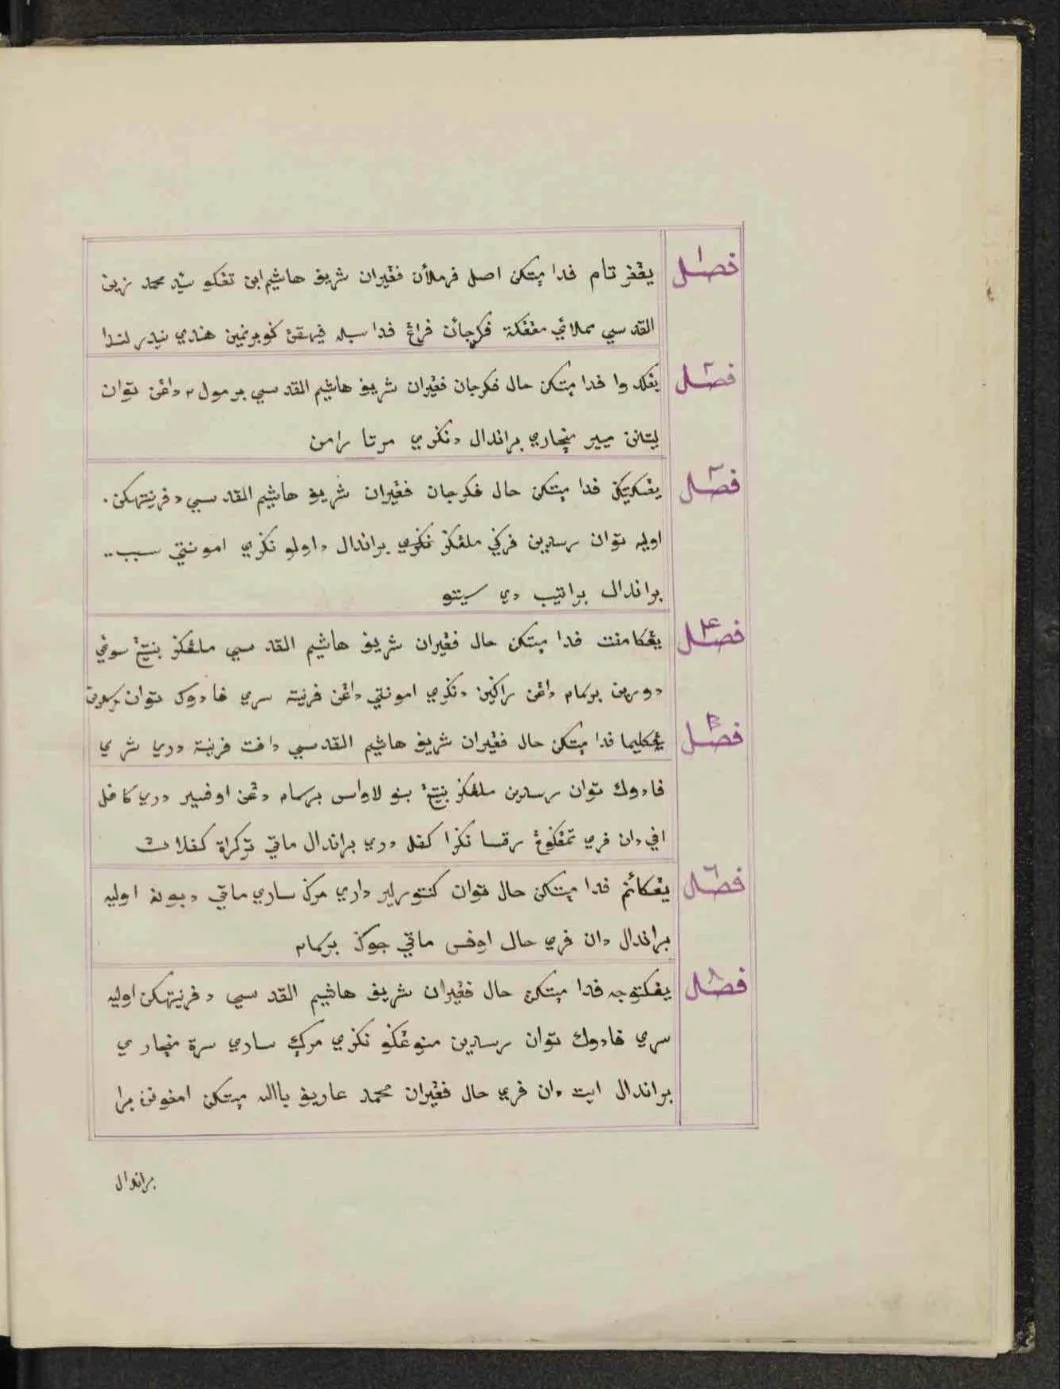 فصل ١
يڠفرتام فدا مپتاكن اصل فرملأن فڠيران شريف هاشيم ابن تڠكو سيد محمد زين
القدسي مملائي مڠڠكة فكرجأن فراڠ فدا سبله فيهقڽ كوبرنمين هندي نيدرلندا
فصل ٢
يڠكدوا فدا مپتاكن حال فكرجان فڠيران شريف هاشيم القدسي برمول٢ داڠن توان
ليتنن ميير منچاري براندال دنكري مرتا رامن
فصل ٣
يڠكتيݢ فدا مپتاكن حال فكرجان فڠيران شريف هاشيم القدسي دفرينتهكن
اوليه توان رسيدين فركي ملڠݢر نكري براندال داولو نكري امونتي سبب
براندال براتيب دي سيتو
فصل ٤
يڠكامفت فدا مپتاكن حال فڠيران شريف هاشيم القدسي ملڠݢر بنتيڠ سوڠي
دورين برسام داڠن راكين دنكري امونتي داڠن فرينته سري فادوك توان رسيدين
فصل ٥
يڠكليما فدا مپتاكن حال فڠيران شريف هاشيم القدسي دافت فرينته دري سري
فادوك توان رسيدين ملڠݢر بنتيڠ بنو لاواس برسام دڠن اوفسير دري كافل
افي دان فري تمڠݢوڠ سرقسا نكرا كفل دري براندال ماتي تركراة كفلاڽ
فصل ٦
يڠكأنم فدا مپتاكن حال توان كنتورلير داري مركساري ماتي دبونه اوليه
براندال دان فري حال اوفس ماتي جوك برسام
فصل ٧
يڠكتوجه فدا مپتاكن حال فڠيران شريف هاشيم القدسي دفرينتهكن اوليه
سري فادوك توان رسيدين منوڠݢو نكري مركساري سرة منچاري
براندال ايت دان فري حال فڠيران محمد عاريف بالله مپتاكن امفونن فرا
براندال